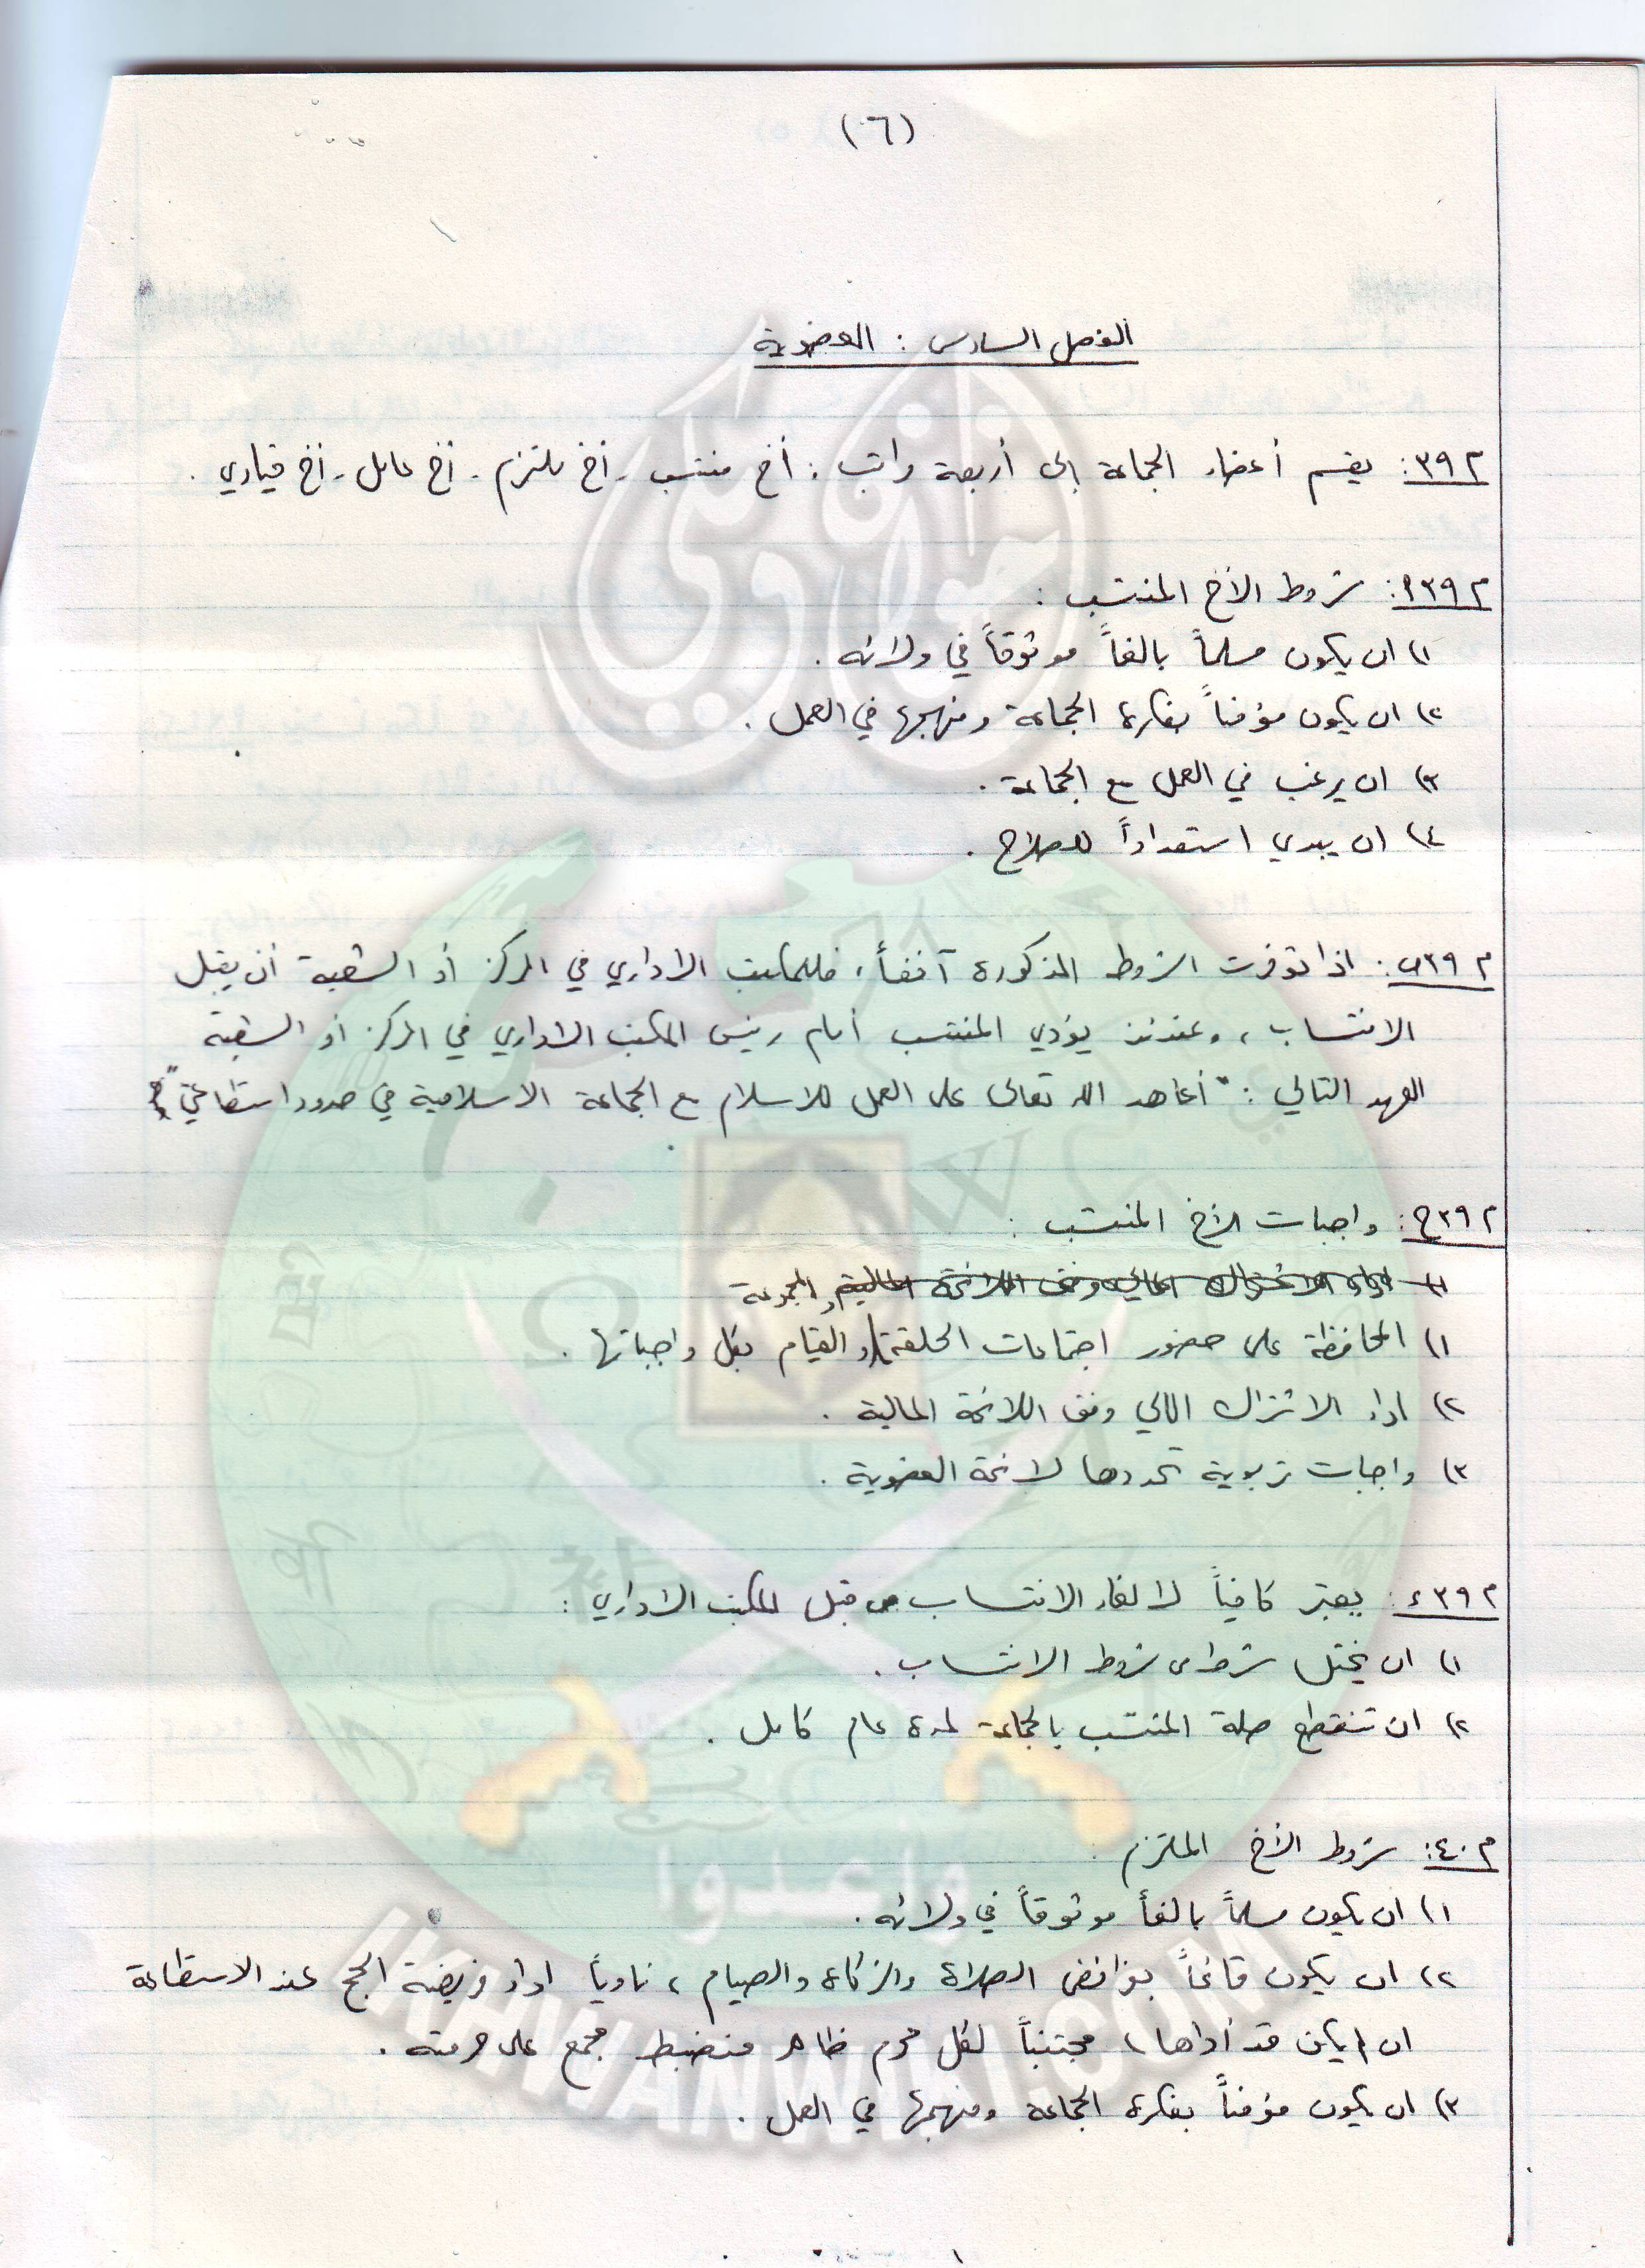 (٦)
الفصل السادس : العضوية
م٣٩: يقسم أعضاء الجماعة إلى أربعة مراتب : أخ منتسب - أخ ملتزم - أخ عامل - أخ قيادي .
م٣٩أ: شروط الأخ المنتسب :
١) ان يكون مسلماً بالغاً موثوقاً في ولائه .
٢) ان يكون مؤمناً بفكرة الجماعة ومنهجها في العمل .
٣) ان يرغب في العمل مع الجماعة .
٤) ان يبدي استعداداً للصلاح .
م٣٩ب: اذا توفرت الشروط المذكورة آنفاً، فللمكتب الاداري في المركز أو الشعبة أن يقبل
الانتساب ، وعندئذ يؤدي المنتسب أمام رئيس المكتب الاداري في المركز أو الشعبة
العهد التالي : "أعاهد الله تعالى على العمل للاسلام مع الجماعة الاسلامية في حدود استطاعتي"
م٣٩ج: واجبات الأخ المنتسب :
١) اداء الاشتراك المالي وفق اللائحة المالية
والمجموعة
١) المحافظة على حضور اجتماعات الحلقة والقيام بكل واجباتها .
٢) اداء الاشتراك المالي وفق اللائحة المالية .
٣) واجبات تربوية تحددها لائحة العضوية .
م٣٩د: يعتبر كافياً لالغاء الانتساب من قبل المكتب الاداري :
١) ان يختل شرط من شروط الانتساب .
٢) ان تنقطع صلة المنتسب بالجماعة لمدة عام كامل .
م٤٠: شروط الأخ الملتزم
١) ان يكون مسلماً بالغاً موثوقاً في ولائه .
٢) ان يكون قائماً بفرائض الصلاة والزكاة والصيام ، ناوياً اداء فريضة الحج عند الاستطاعة
ان لم يكن قد أداها ، مجتنباً لكل محرم ظاهر منضبط مجمع على حرمته .
٣) ان يكون مؤمناً بفكرة الجماعة ومنهجها في العمل .
إخوان ويكي
وأعدوا
IKHWANWIKI.COM